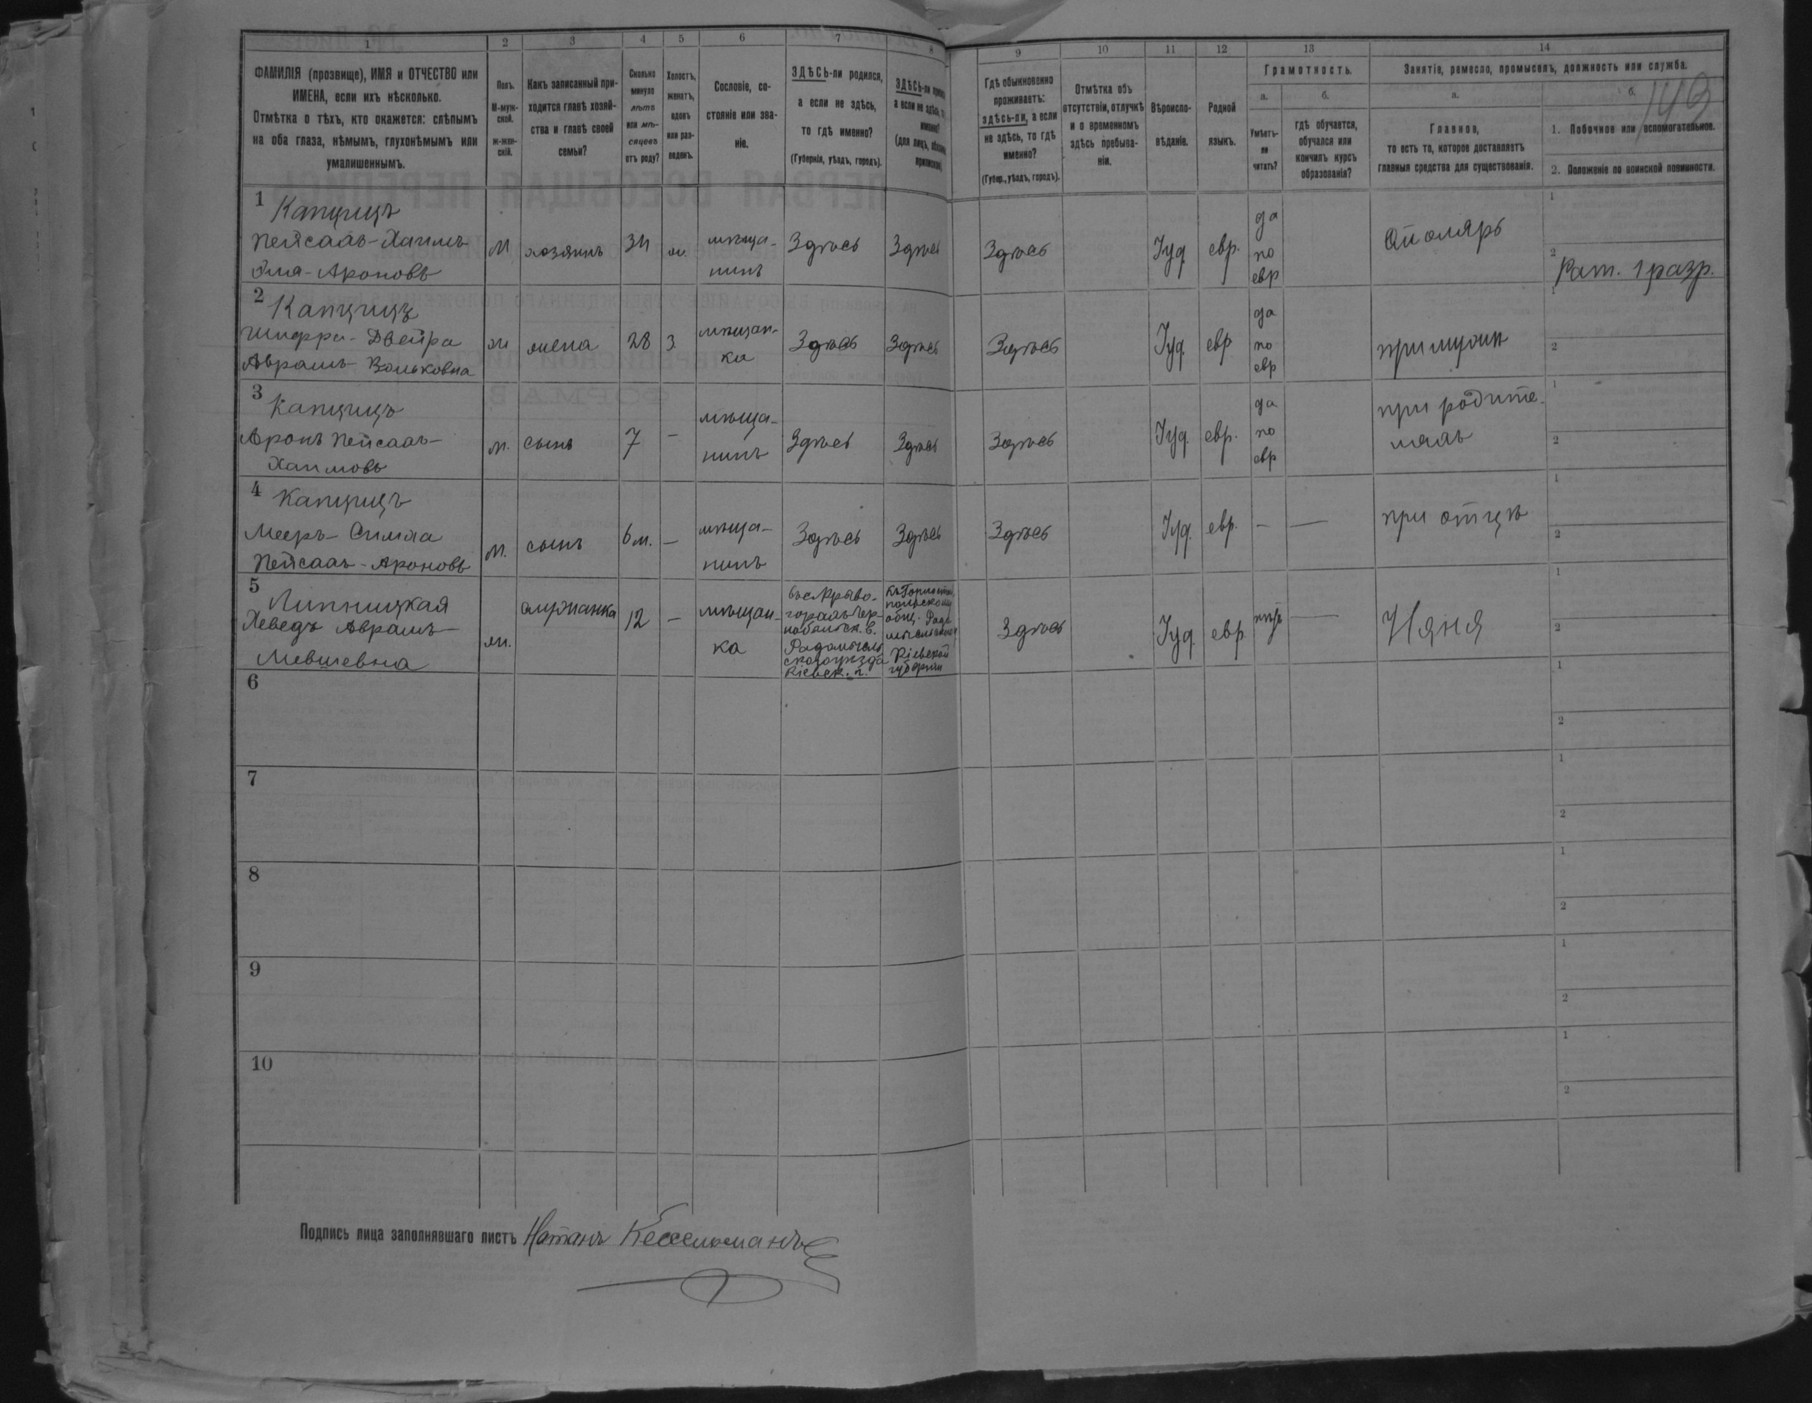 1 2 3 4 5 6 7 8 9 10 11 12 13 14
ФАМИЛІЯ (прозвище), ИМЯ и ОТЧЕСТВО или ИМЕНА, если ихъ нѣсколько.
Отмѣтка о тѣхъ, кто окажется: слѣпымъ на оба глаза, нѣмымъ, глухонѣмымъ или умалишеннымъ.
Полъ.
М-мужской.
Ж-женскій.
Какъ записанный приходится главѣ хозяйства и главѣ своей семьи?
Сколько минуло лѣтъ или мѣсяцевъ отъ роду?
Холостъ, женатъ, вдовъ или разведенъ.
Сословіе, состояніе или званіе.
ЗДѢСЬ-ли родился, а если не здѣсь, то гдѣ именно?
(Губернія, уѣздъ, городъ).
ЗДѢСЬ-ли
а если не здѣсь,
Гдѣ обыкновенно проживаетъ: здѣсь-ли, а если не здѣсь, то гдѣ именно?
(Губер., уѣздъ, городъ).
Отмѣтка объ отсутствіи, отлучкѣ и о временномъ здѣсь пребываніи.
Вѣроисповѣданіе.
Родной языкъ.
Грамотность.
а.
Умѣетъ-ли читать?
б.
гдѣ обучается, обучался или кончилъ курсъ образованія?
Занятіе, ремесло, промыселъ, должность или служба.
а.
Главное,
то есть то, которое доставляетъ главныя средства для существованія.
б.
1. Побочное или вспомогательное.
2. Положеніе по воинской повинности.
149
1 Капцицъ
Пейсахъ-Хаимъ
Эля-Ароновъ
М хозяинъ 34 ж. мѣща-
нинъ
Здѣсь Здѣсь Здѣсь
Іуд евр.
да
по
евр
Столяръ
1
2 Рат. 1 разр.
2 Капцицъ
Шифра-Двейра
Аврамъ-Вольковна
ж жена 28 з мѣщан-
ка
Здѣсь Здѣсь Здѣсь
Іуд евр
да
по
евр
при мужѣ
1
2
3 Капцицъ
Аронъ Пейсахъ-
Хаимовъ
м. сынъ 7 — мѣща-
нинъ
Здѣсь Здѣсь Здѣсь
Іуд евр.
да
по
евр
при родите-
ляхъ
1
2
4 Капцицъ
Мееръ-Симха
Пейсахъ-Ароновъ
м. сынъ 6 м. — мѣща-
нинъ
Здѣсь Здѣсь Здѣсь
Іуд. евр. — —
при отцѣ
1
2
5 Липницкая
Хеведъ Аврамъ-
Мевшевна
ж. служанка 12 — мѣщан-
ка
Радомысль-
скаго уѣзда
Кіевск. г.
Кіевской
губерніи
Здѣсь
Іуд евр —
Няня
1
2
6
1
2
7
1
2
8
1
2
9
1
2
10
1
2
Подпись лица заполнявшаго листъ Натанъ Кессельманъ